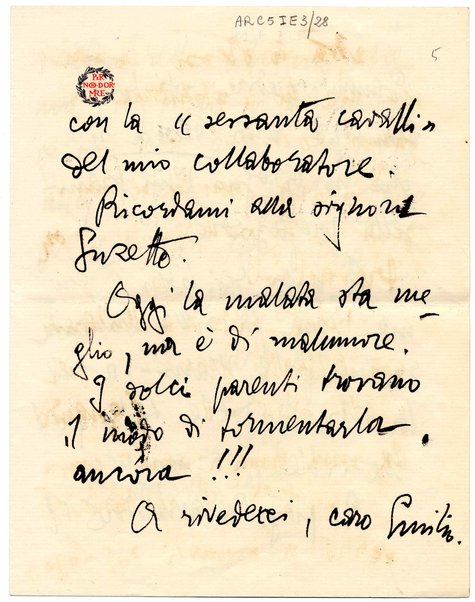 ARC5IE3/28
5
PER
NON DOR
MIRE
con la « sessanta cavalli »
del mio collaboratore.
Ricordami alla signora
Suzette.
Oggi la malata sta me-
glio, ma è di malumore.
I dolci parenti trovano
il modo di tormentarla,
ancóra !!!
A rivederci, caro Emilio.